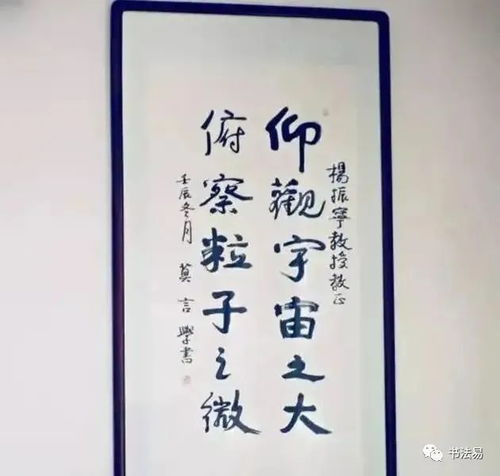 楊振寧教授教正
仰觀宇宙之大
俯察粒子之微
壬辰冬月 莫言學書
书法易